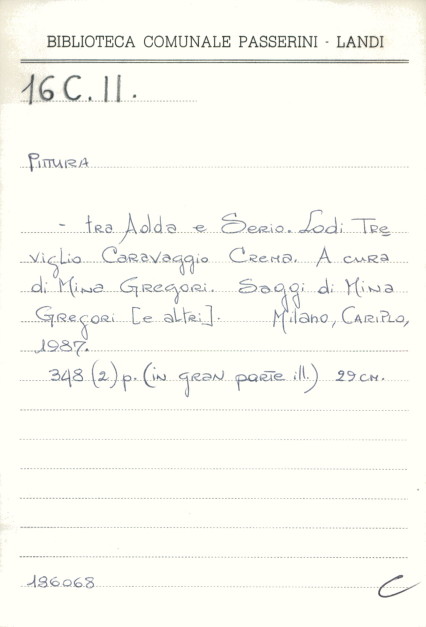 BIBLIOTECA COMUNALE PASSERINI - LANDI
16 C. II.
PITTURA
- tra Adda e Serio. Lodi Tre
viglio Caravaggio Crema. A cura
di Mina Gregori. Saggi di Mina
Gregori [e altri]. Milano, CARIPLO,
1987.
348 (2) p. (in gran parte ill.) 29 cm.
196068
C